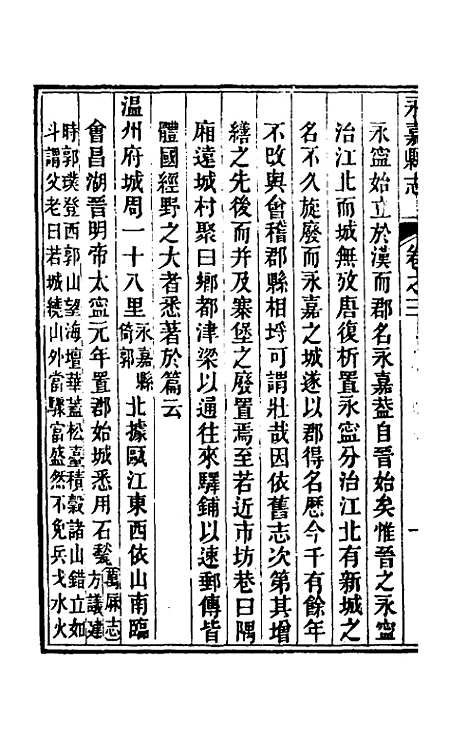 永嘉縣志 卷之三
永寧始立於漢而郡名永嘉葢自晉始矣惟晉之永寧
治江北而城無攷唐復析置永寧分治江北有新城之
名不久旋廢而永嘉之城遂以郡得名歷今千有餘年
不改與會稽郡縣相埒可謂壯哉因依舊志次第其增
繕之先後而并及寨堡之廢置焉至若近市坊巷曰隅
廂遠城村聚曰鄉都津梁以通往來驛鋪以速郵傳皆
體國經野之大者悉著於篇云
溫州府城周一十八里永嘉縣倚郭北據甌江東西依山南臨
會昌湖晉明帝太寧元年置郡始城悉用石甃萬厤志方議建
時郭璞登西郭山望海壇華蓋松臺積穀諸山錯立如
斗謂父老曰若城繞山外當驟富盛然不免兵戈水火